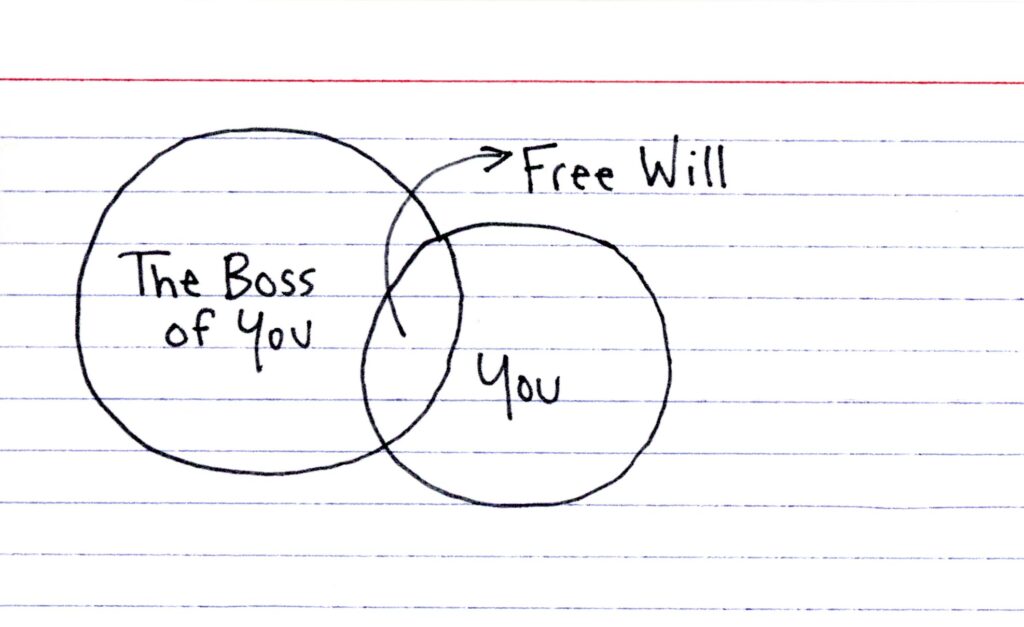 Free Will
The Boss
of You
You